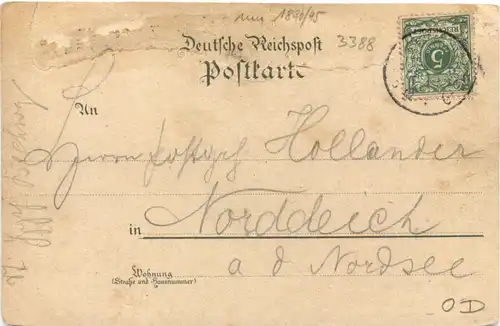 num 1890/95
Deutsche Reichspost
3388
Postkarte
5
An
Herrn Hollander
Norddeich
in
a d Nordsee
Wohnung
(Straße und Hausnummer)
OD